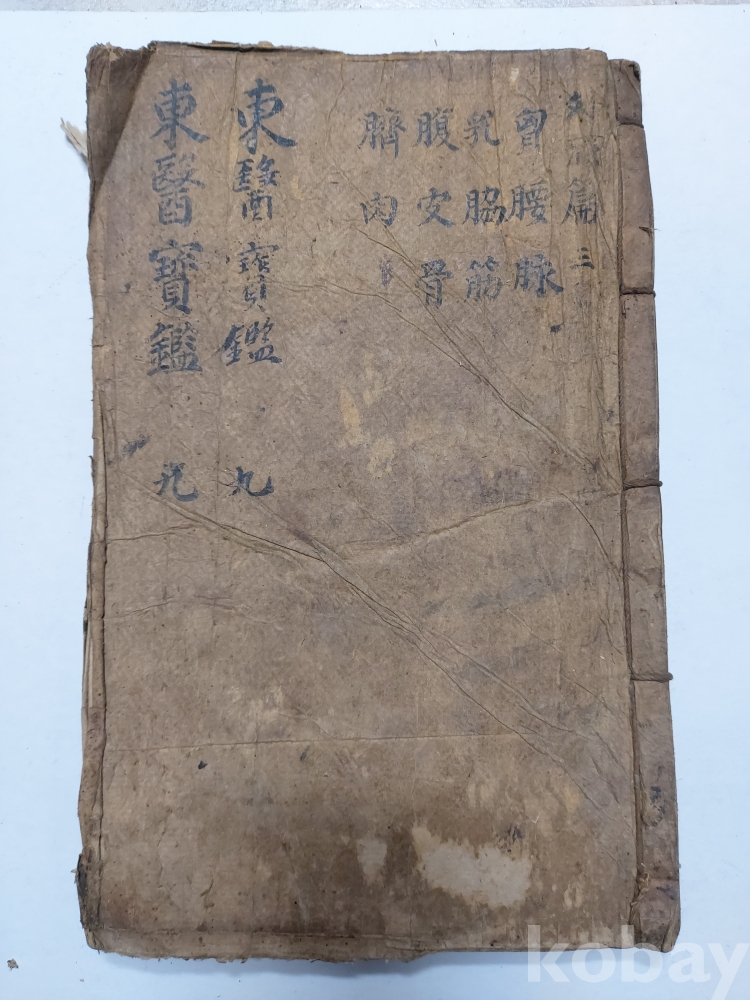 外形篇 三
胷腰脉
乳脇筋
腹皮骨
臍肉
東醫寶鑑 九
東醫寶鑑 九
kobay